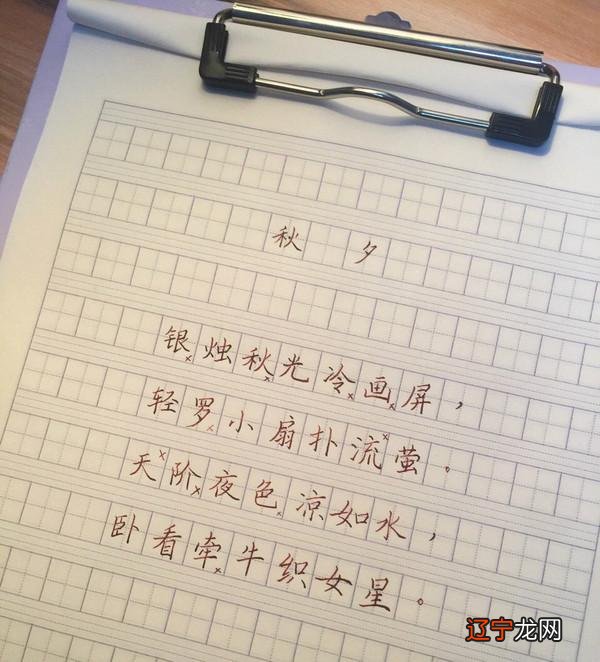 秋 夕
银烛秋光冷画屏，
轻罗小扇扑流萤。
天阶夜色凉如水，
卧看牵牛织女星。
辽宁龙网